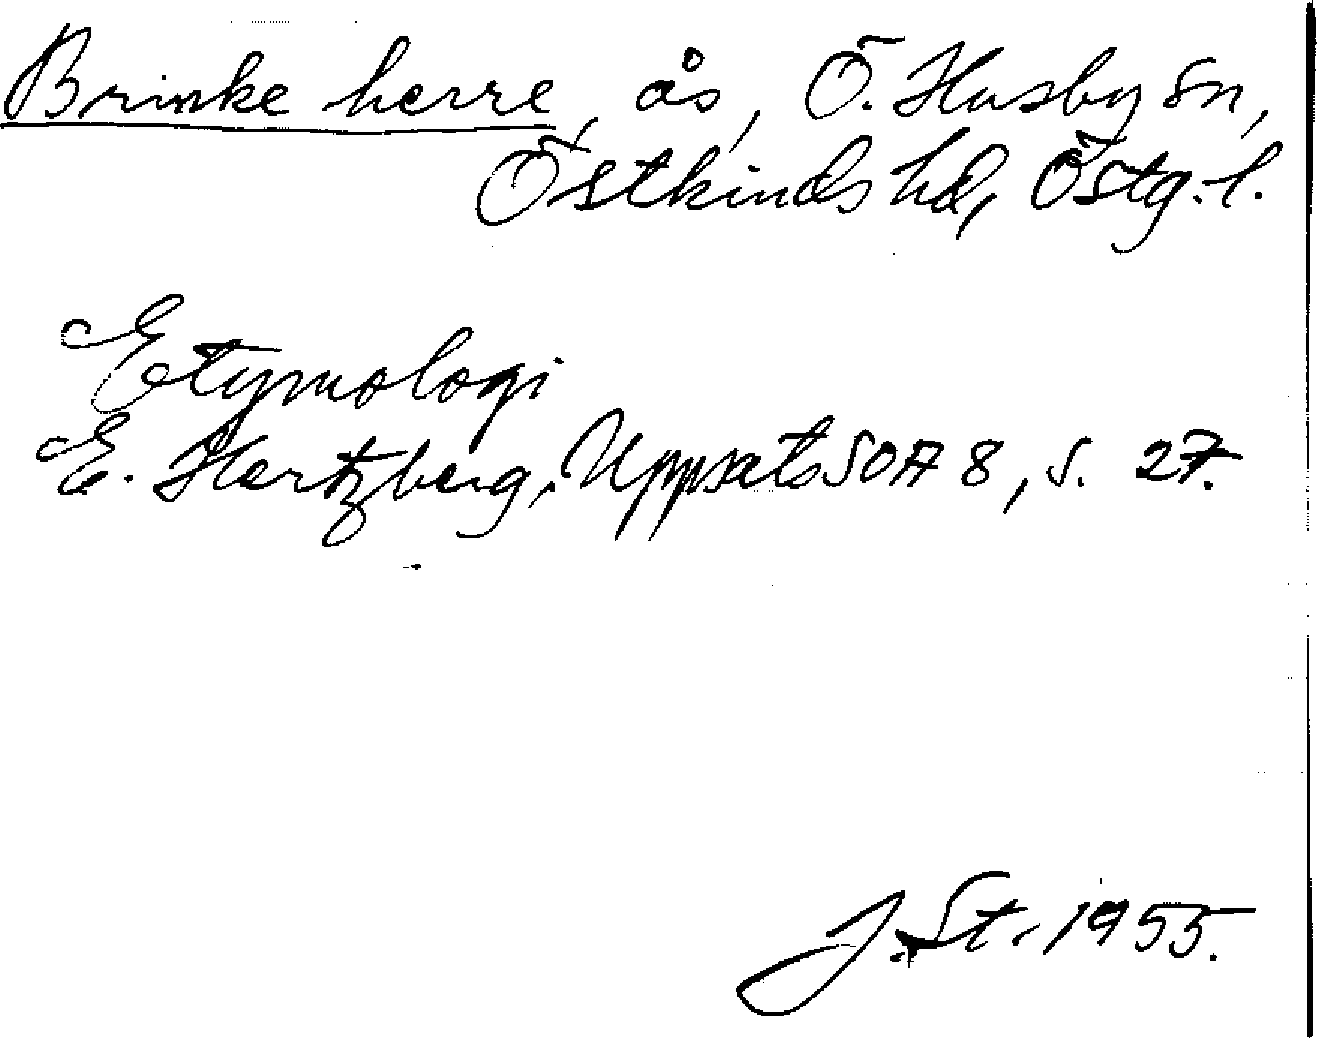 Brinke herre, ås, Ö. Husby sn,
Östkinds hd, Östg. l.
Etymologi
E. Hertzberg, Uppsats SOA 8, s. 27.
J. St. 1955.